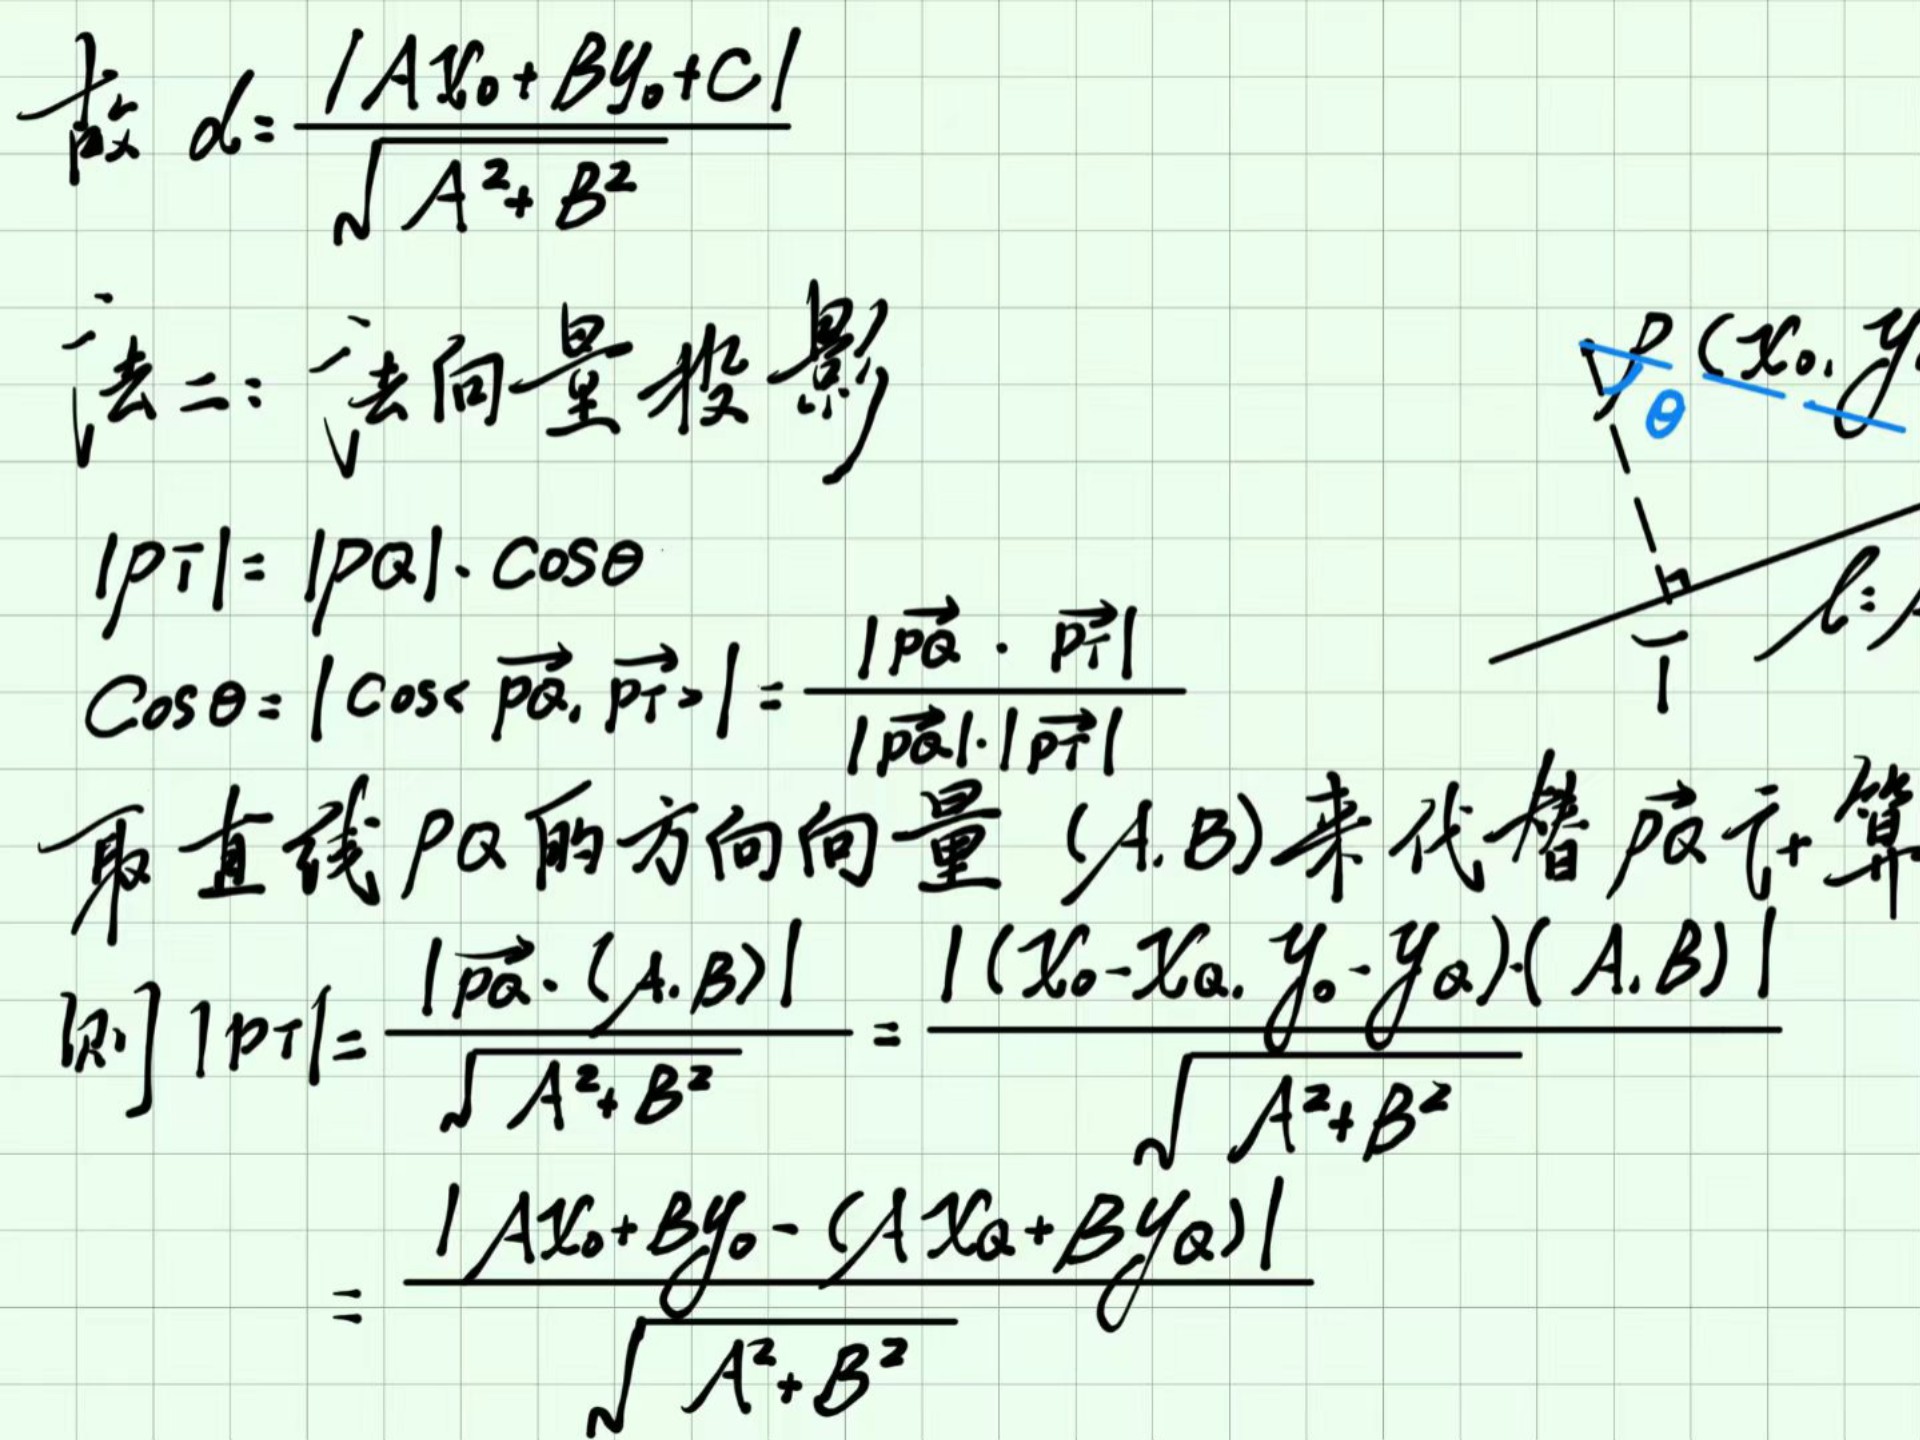 故 d = |Ax₀+By₀+C| / √(A²+B²)
法二：法向量投影
P(x₀, y₀
θ
|PT| = |PQ|·cosθ
l:
T
cosθ = |cos<\vec{PQ}, \vec{PT}>| = |\vec{PQ} · \vec{PT}| / |\vec{PQ}|·|\vec{PT}|
取直线PQ的方向向量 (A,B)来代替\vec{PQ}计算
则|PT| = |\vec{PQ}·(A,B)| / √(A²+B²) = |(x₀-x_Q, y₀-y_Q)·(A,B)| / √(A²+B²)
= |Ax₀+By₀-(Ax_Q+By_Q)| / √(A²+B²)